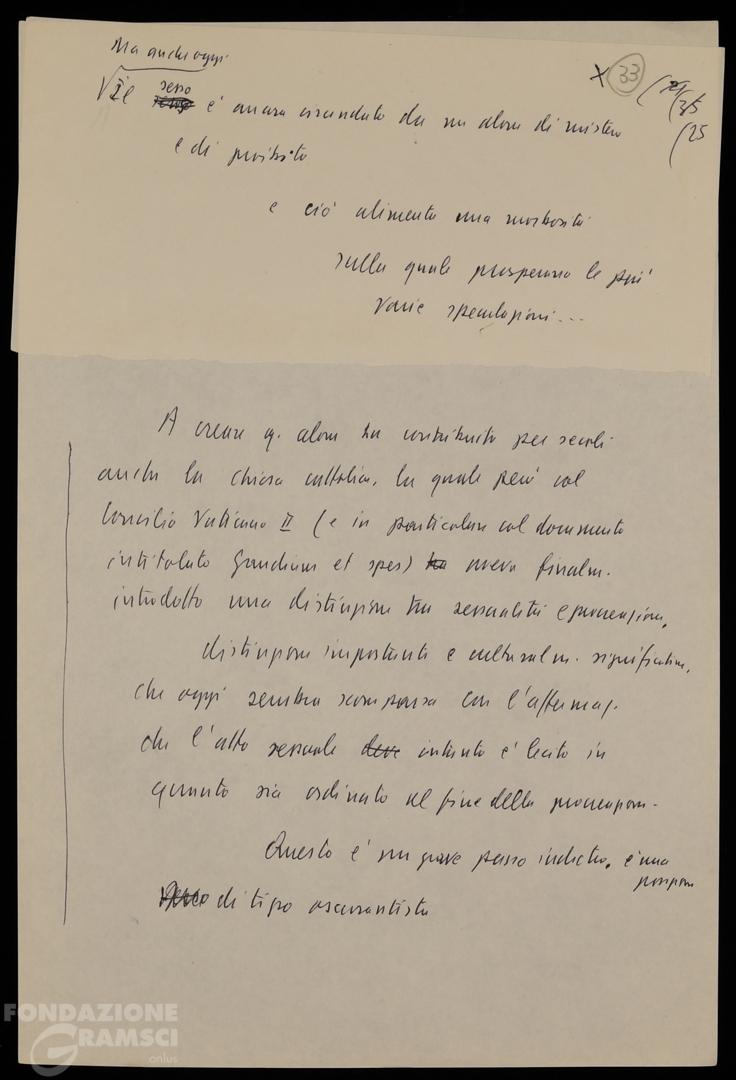 Ma anche oggi
Il sesso è ancora circondato da un alone di mistero
e di proibito
e ciò alimenta una morbosità
sulla quale prosperano le più
varie speculazioni ...
X 33
A creare q. alone ha contribuito per secoli
anche la chiesa cattolica, la quale però col
Concilio Vaticano II (e in particolare col documento
intitolato Gaudium et spes) ha aveva finalm.
introdotto una distinzione tra sessualità e procreazione,
distinzione importante e culturalm. significativa,
che oggi sembra scomparsa con l'affermaz.
che l'atto sessuale deve intanto è lecito in
quanto sia ordinato al fine della procreazione.
Questo è un grave passo indietro, è una
posizione
di tipo oscurantista
FONDAZIONE
GRAMSCI
onlus